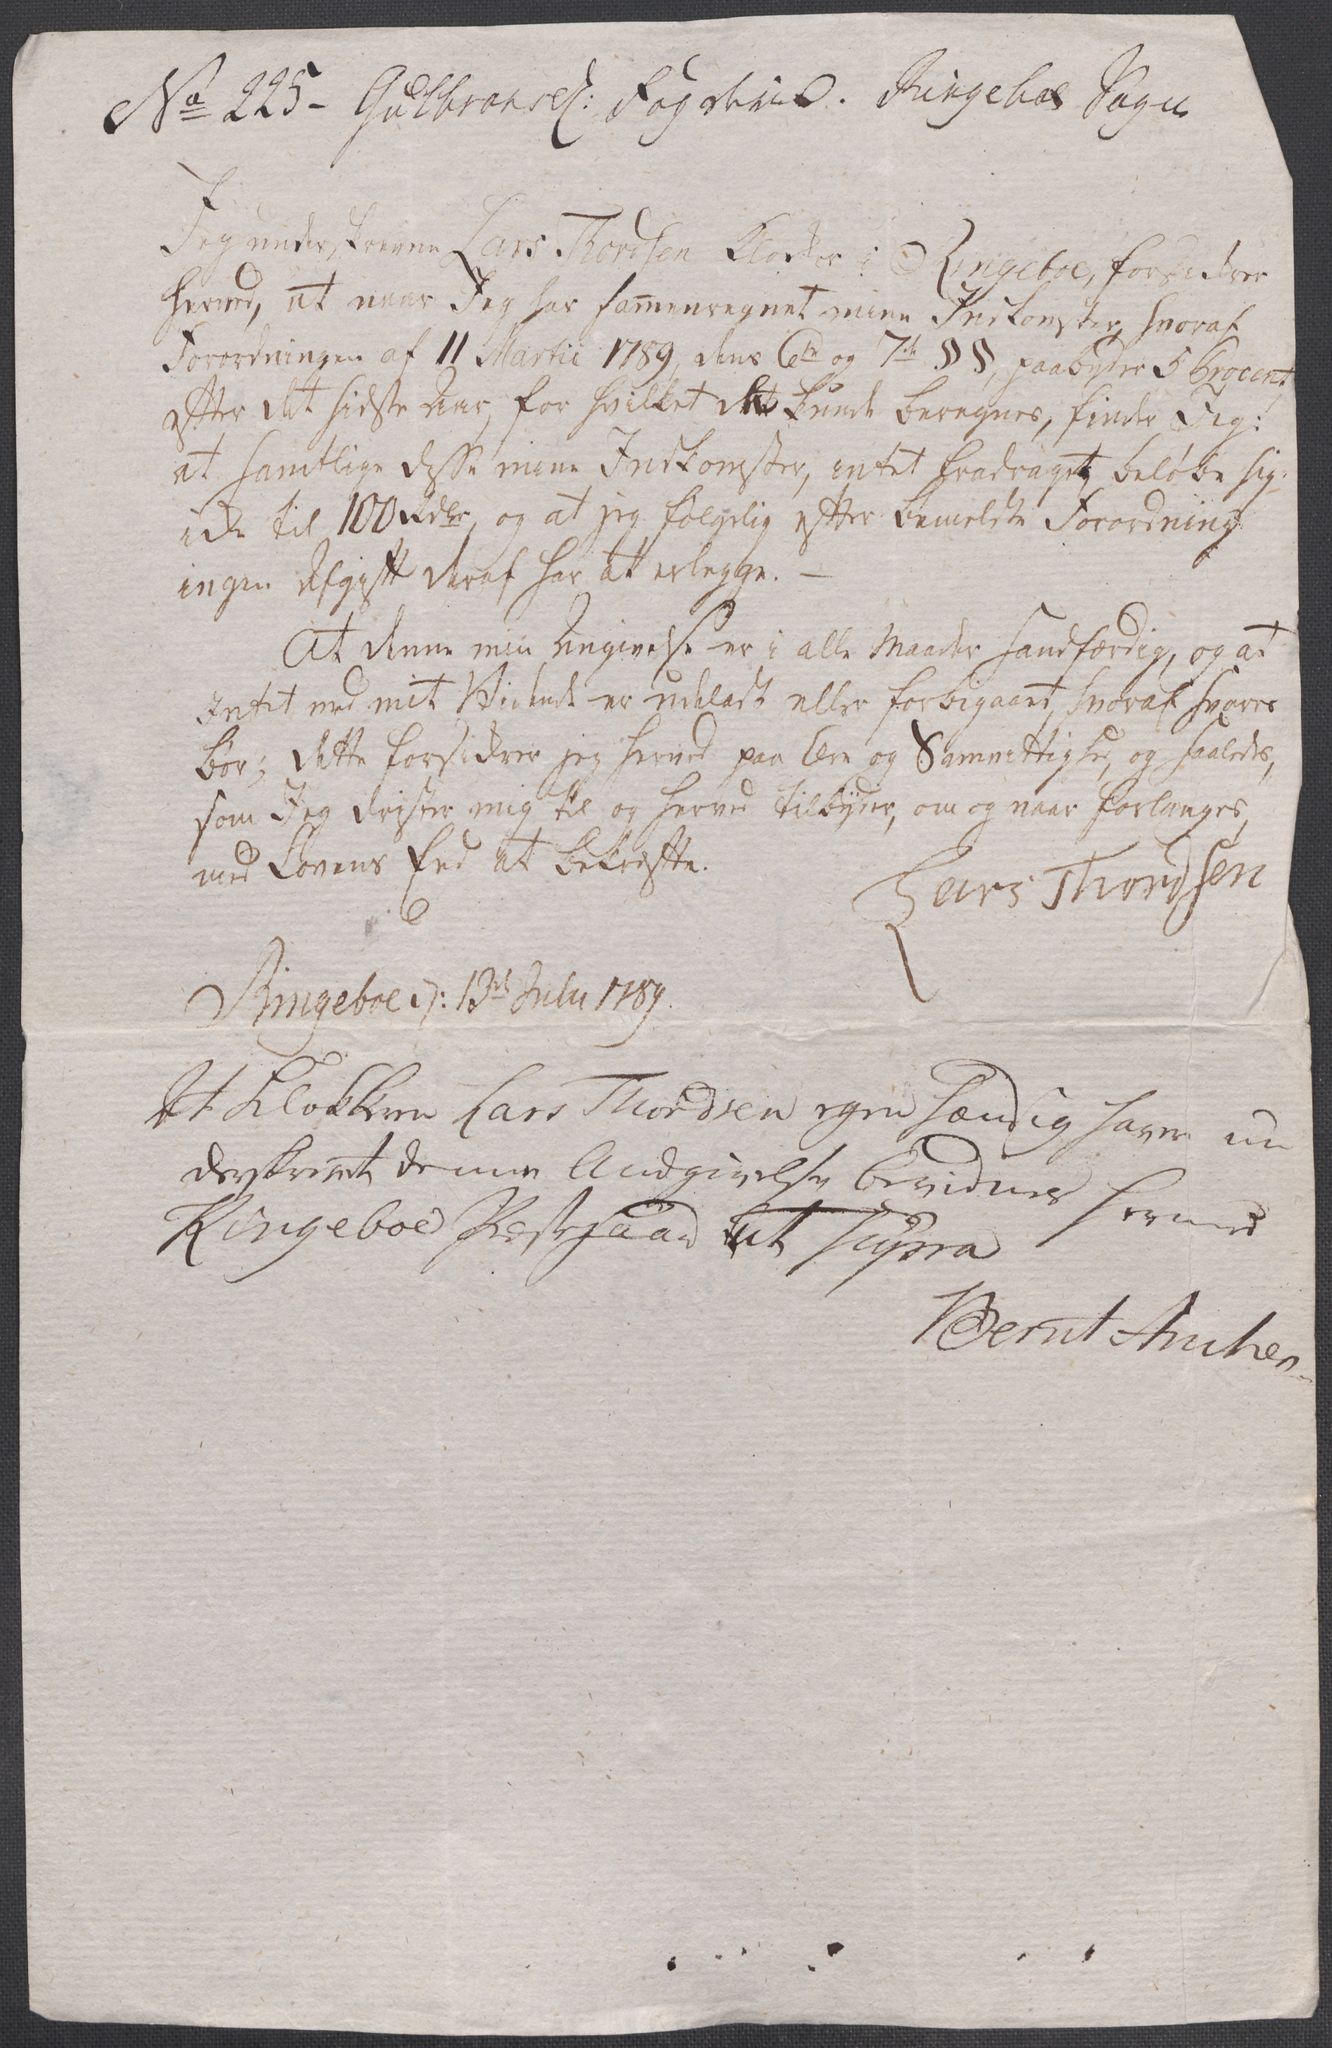 No 225- Gulbransd: Fogderie. Ringeboe Sogn
Jeg underskrevne Lars Thordsen Klokker i Ringeboe, forsikrer
herved, at naar Jeg har samenregnet mine Indkomster, hvoraf
Forordningen af 11 Martii 1789, dens 6te og 7de §§, paabyder 5 Procent,
efter det sidste Aar, for hvilket det kunde beregnes, finder Jeg:
at samtlige disse mine Indkomster, intet fradraget, beløbe sig
ikke til 100 Rdlr, og at jeg følgelig efter bemeldte Forordning
ingen Afgift deraf har at erlegge. —
At denne min Angivelse er i alle Maader sandfærdig, og at
intet med mit Vidende er udeladt eller forbigaaet, hvoraf svares
bør; dette forsikrer jeg herved paa Ære og Samvittighed, og saaledes,
som Jeg drister mig til og herved tilbyder, om og naar forlanges,
med Lovens Eed at bekræfte.
Lars Thordsen
Ringeboe d: 13de Julii 1789.
At Klokkeren Lars Thordsen egenhændig haver un
derskrevet denne Andgivelse bevidnes herved
Ringeboe Præstegaard ut supra
Bernt Ancher